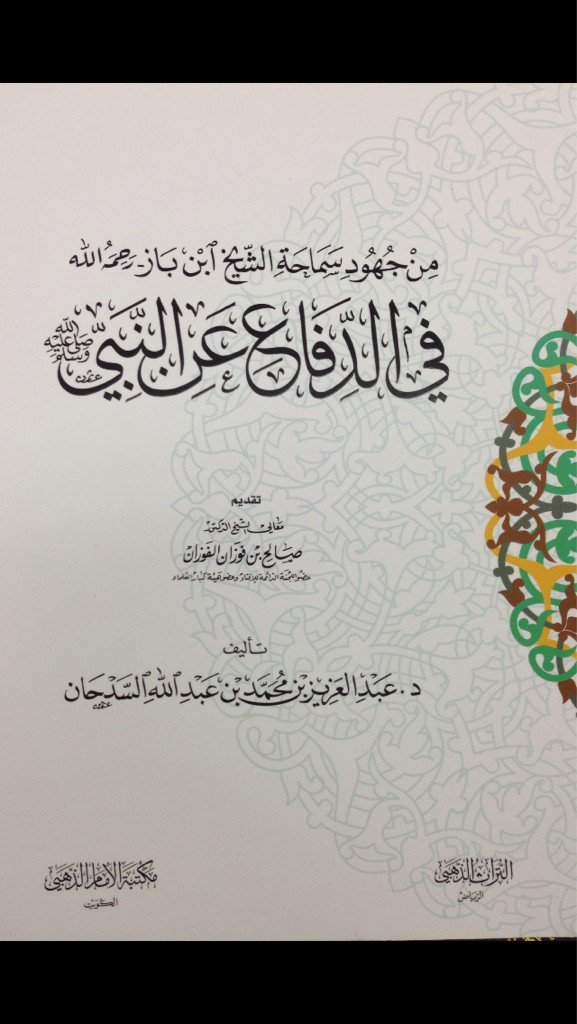 مِنْ جُهُودِ سَمَاحَةِ الشَّيْخِ ٱبْنِ بَازٍ - رَحِمَهُ اللّٰه
فِي الدِّفَاعِ عَنِ النَّبِيِّ صَلَّى اللّٰهُ عَلَيْهِ وَسَلَّمَ
تقديم
معالي الشيخ الدكتور
صالح بن فوزان الفوزان
عضو اللجنة الدائمة للإفتاء وعضو هيئة كبار العلماء
تأليف
د. عَبْدِ العَزِيزِ بْنِ مُحَمَّدِ بْنِ عَبْدِ اللهِ السَّدحَان
التراث الذهبي
الرياض
مكتبة الإمام الذهبي
الكويت